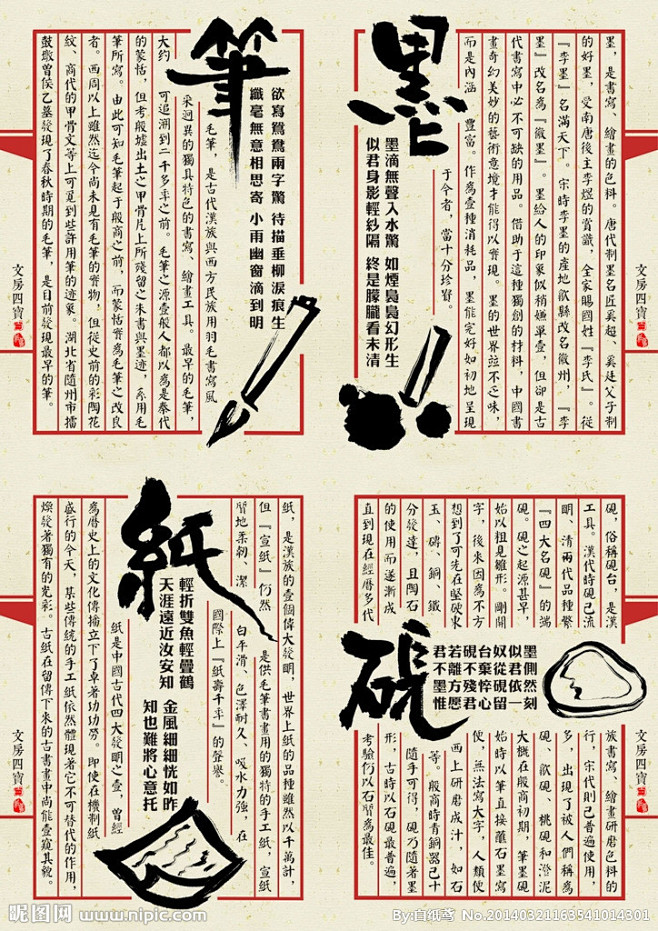 欲寫鴛鴦兩字驚 待描垂柳淚痕生
纖毫無意相思寄 小雨幽窗滴到明
筆
毛筆，是古代漢族與西方民族用羽毛書寫風
采迥異的獨具特色的書寫、繪畫工具。最早的毛筆，
大約 可追溯到二千多年之前。毛筆之源壹般人都以爲是秦代
的蒙恬，但考殷墟出土之甲骨片上所殘留之朱書與墨迹，系用毛
筆所寫。由此可知毛筆起于殷商之前，而蒙恬實爲毛筆之改良
者。西周以上雖然迄今尚未見有毛筆的實物，但從史前的彩陶花
紋、商代的甲骨文等上可覓到些許用筆的迹象。湖北省隨州市擂
鼓墩曾侯乙墓發現了春秋時期的毛筆，是目前發現最早的筆。
文房四寶
墨
墨，是書寫、繪畫的色料。唐代制墨名匠奚超、奚廷父子制
的好墨，受南唐後主李煜的賞識，全家賜國姓『李氏』。從
『李墨』名滿天下。宋時李墨的產地歙縣改名徽州，『李
墨』改名爲『徽墨』。墨給人的印象似稍嫌單壹，但卻是古
代書寫中必不可缺的用品。借助于這種獨創的材料，中國書
畫奇幻美妙的藝術意境才能得以實現。墨的世界並不乏味，
而是內涵 豐富。作爲壹種消耗品，墨能完好如初地呈現
于今者，當十分珍貴。
墨滴無聲入水驚 如煙裊裊幻形生
似君身影輕紗隔 終是朦朧看未清
文房四寶
紙
紙，是漢族的壹個偉大發明，世界上紙的品種雖然以千萬計，
但『宣紙』仍然 是供毛筆書畫用的獨特的手工紙，宣紙
質地柔韌、潔 白平滑、色澤耐久、吸水力強，在
國際上『紙壽千年』的聲譽。
輕折雙魚輕疊鶴 金風細細恍如昨
天涯遠近汝安知 知也難將心意托
紙是中國古代四大發明之壹，曾經
爲曆史上的文化傳播立下了卓著功功勞。即使在機制紙
盛行的今天，某些傳統的手工紙依然體現著它不可替代的作用，
煥發著獨有的光彩。古紙在留傳下來的古書畫中尚能壹窺其貌。
文房四寶
硯
硯，俗稱硯台，是漢族書寫、繪畫研磨色料的
工具。漢代時硯已流行，宋代則已普遍使用，
明、清兩代品種繁多，出現了被人們稱爲
『四大名硯』的端硯、歙硯、桃硯和澄泥
硯。硯之起源甚早，大概在殷商初期，筆墨硯
始以粗見雛形。剛開始時以筆直接蘸石墨寫
字，後來因爲不方便，無法寫大字，人類便
想到了可先在堅硬東西上研磨成汁，如石
玉、磚、銅、鐵等。殷商時青銅器已十
分發達，且陶石隨手可得，硯乃隨著墨
的使用而逐漸成形，古時以石硯最普遍，
直到現在經曆多代考驗仍以石質爲最佳。
君若硯台奴似墨
不離不棄從君側
墨方殘悴硯依然
惟愿君心留一刻
文房四寶
昵图网 www.nipic.com
By:直纸鸢 No.20140321163541014301